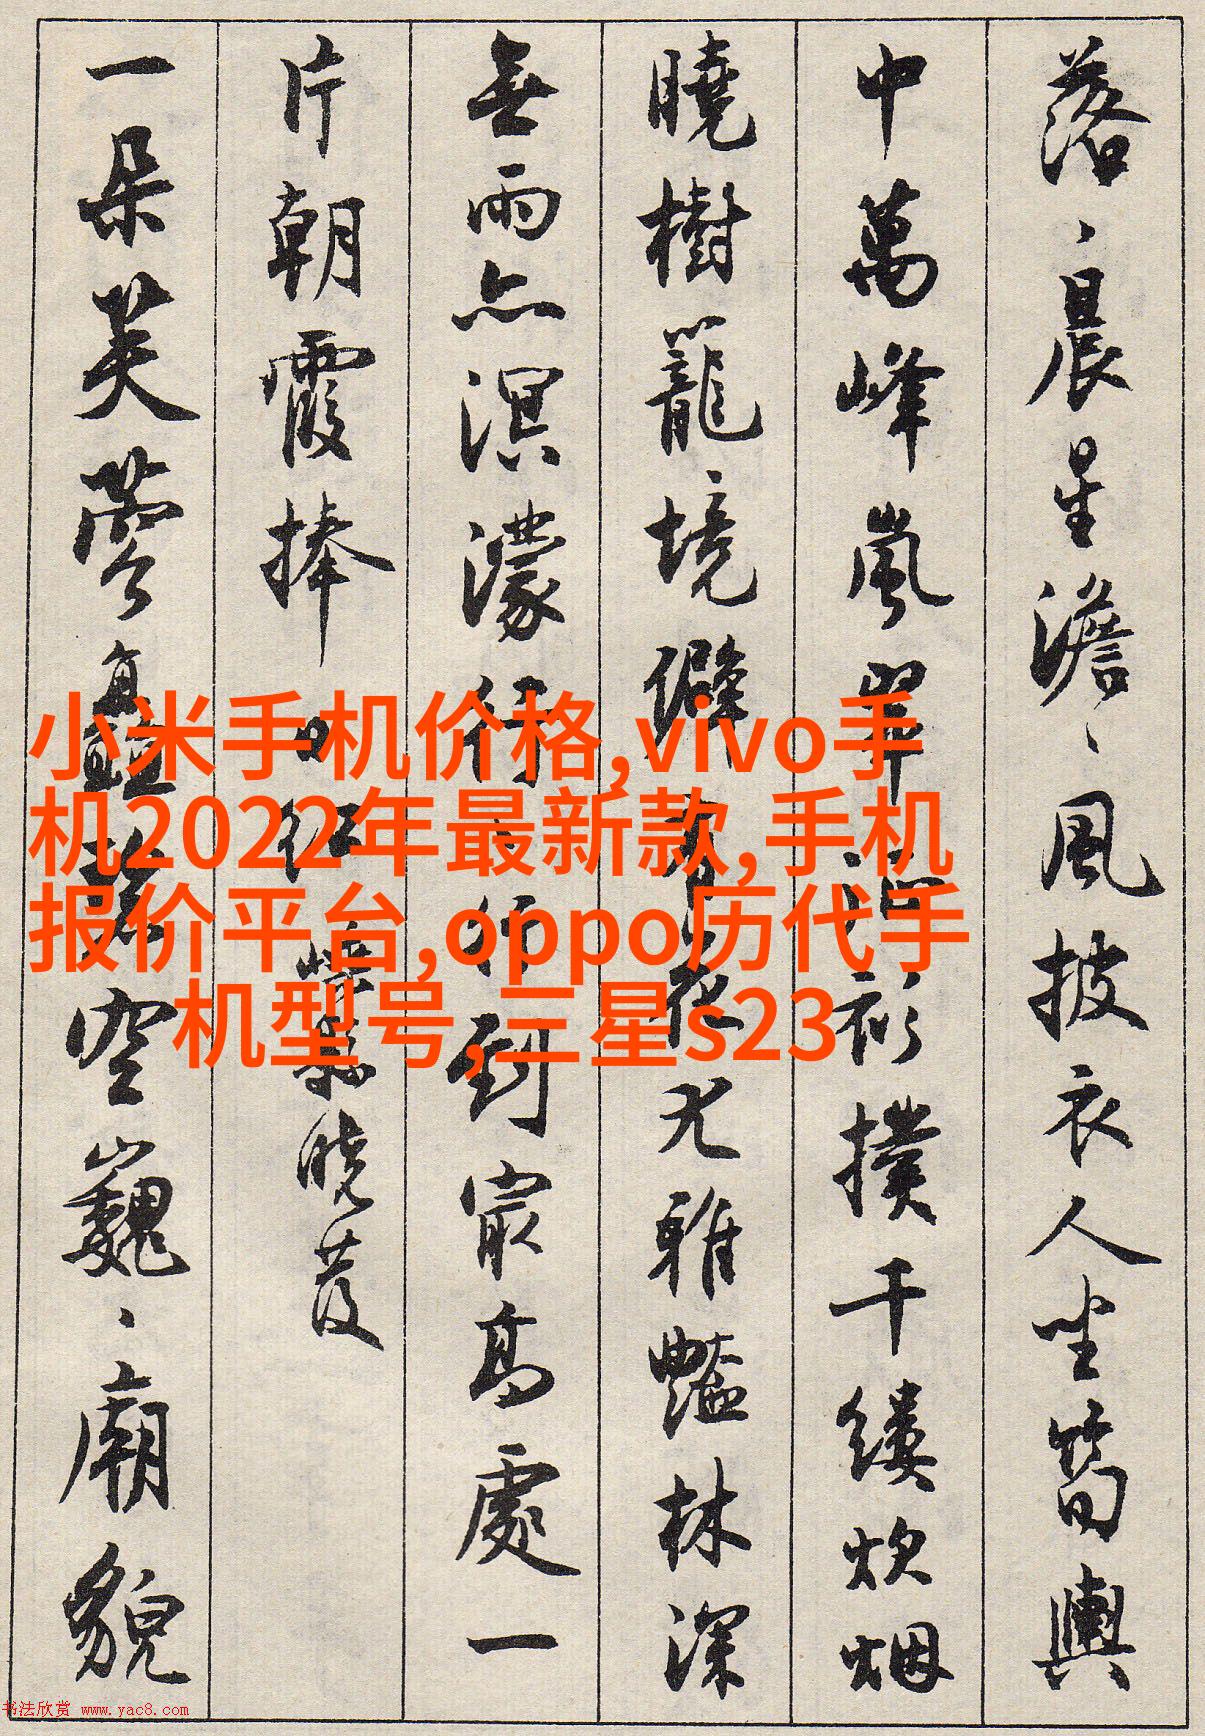 落、晨星澹、風披衣人坐筍輿
中萬峰嵐翠衫撲千縷炊烟
曉樹籠、境僻花尤雅豔林深
無雨亦溟濛行行到最高處一
片朝霞捧日紅
縣曉發
一朵芙蓉矗碧空巍、廟貌
小米手机价格,vivo手
机2022年最新款,手机
报价平台,oppo历代手
机型号,三星s23
书法欣赏 www.yac8.com